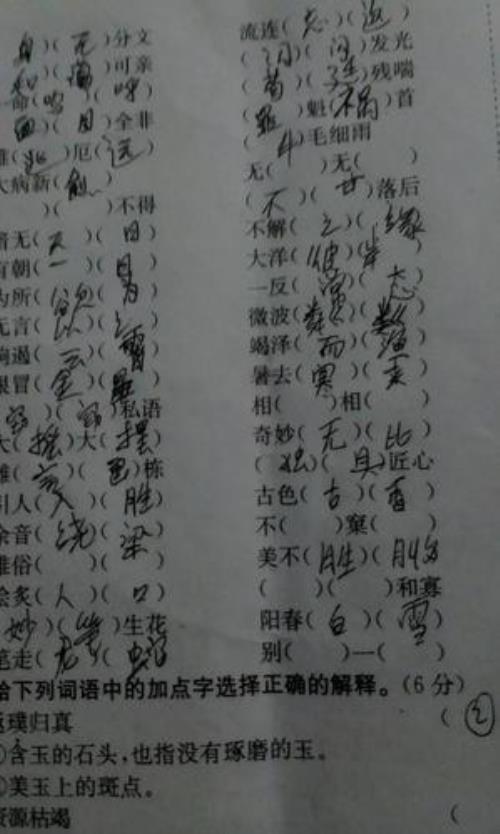 (身)(无)分文 流连(忘)(返)
(和)(蔼)可亲 (闪)(闪)发光
命(呜)(呼) (苟)(延)残喘
(面)(目)全非 (罪)魁(祸)首
(此)厄(远) (牛)毛细雨
大病新(愈) 无( )无( )
( )( )不得 (不)(甘)落后
暗无(天)(日) 不解(之)(缘)
有朝(一)(日) 大洋(彼)(岸)
为所(欲)(为) 一反(常)(态)
无言(以)( ) 微波(粼)(粼)
响遏(云)(霄) 竭泽(而)(渔)
眼冒(金)(星) 暑去(寒)(来)
(窃)(窃)私语 相( )相( )
大(摇)大(摆) 奇妙(无)(比)
雕( )( )栋 (独)(具)匠心
引人(入)(胜) 古色(古)(香)
余音(绕)(梁) 不( )窠( )
雅俗( )( ) 美不(胜)(收)
脍炙(人)(口) ( )( )和寡
(妙)(笔)生花 阳春(白)(雪)
笔走(龙)(蛇) 别( )一( )
给下列词语中的加点字选择正确的解释。(6分)
返璞归真 (②
①含玉的石头,也指没有琢磨的玉。
②美玉上的斑点。
资源枯竭 (